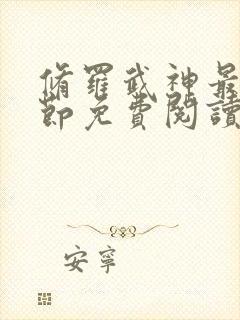 脩羅武神最
節免費閱讀
安寧